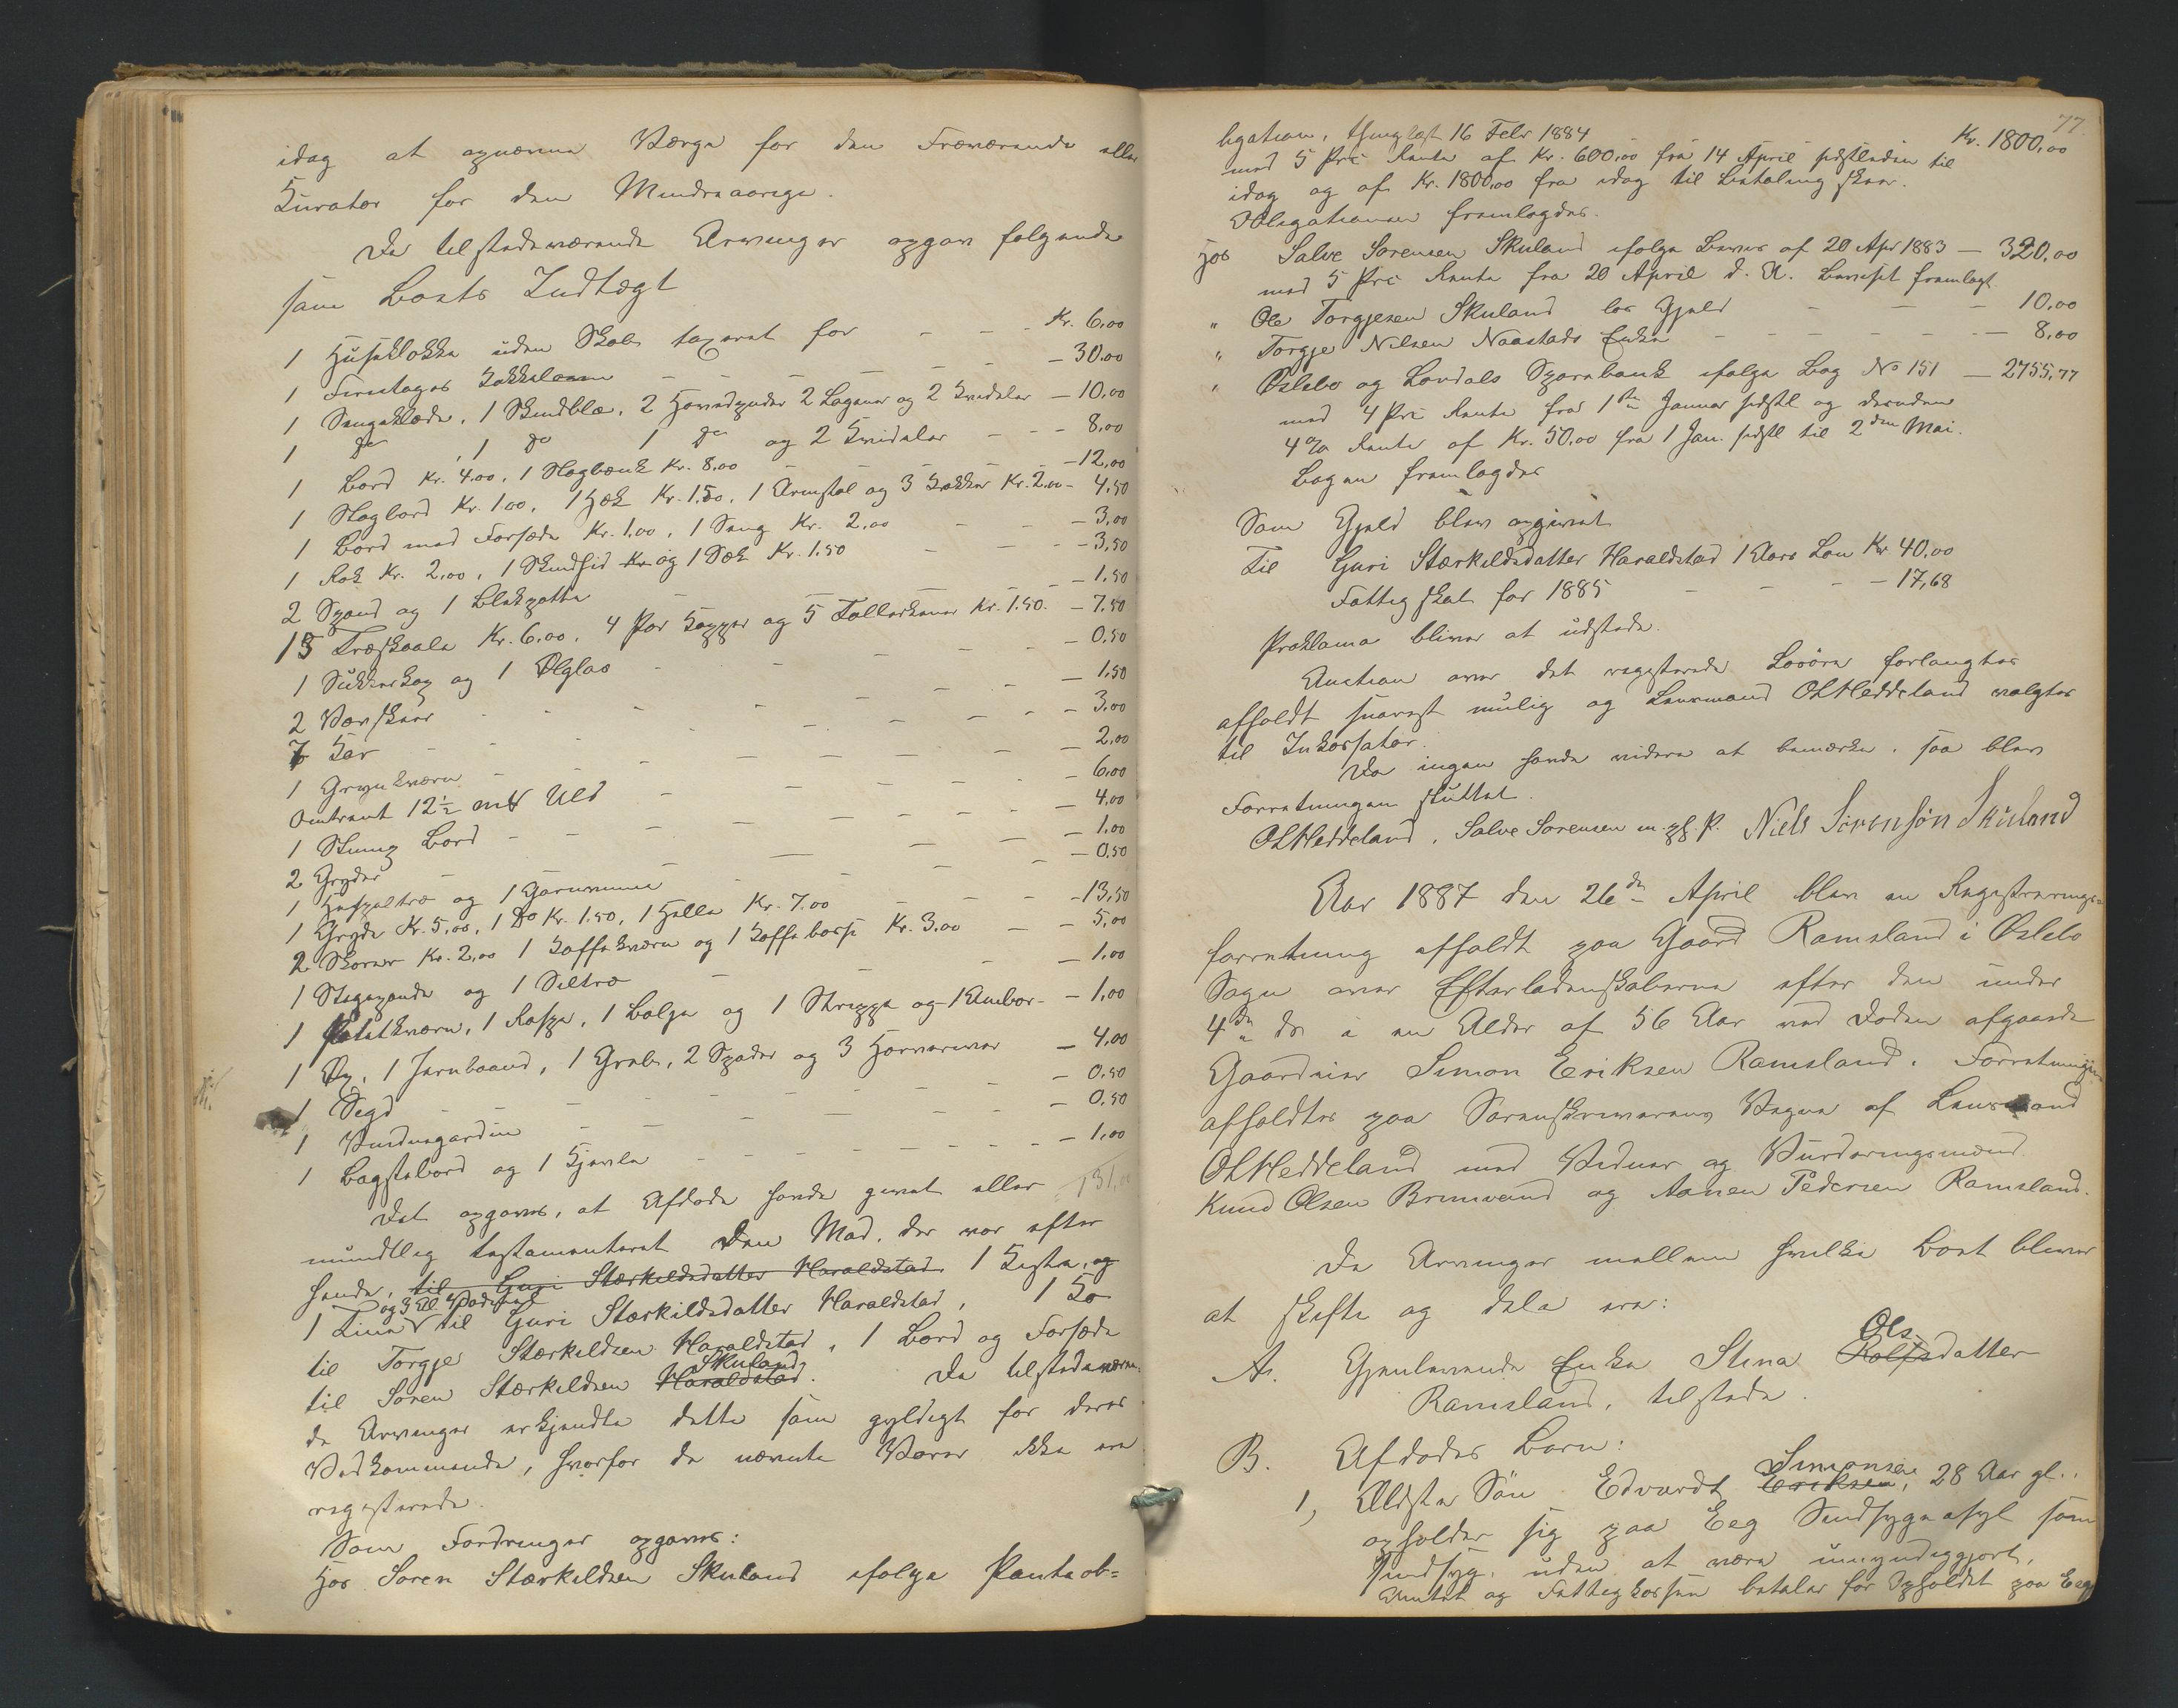 idag at opnævne Værge for den Fraværende eller
Kurator for den Mindreaarige.
De tilstedeværende Arvinger opgav følgende
som Boets Indtægt
1 Huseklokke uden Skab taxeret for - - - Kr. 6,00
1 Firestages Kakkelovn - - - - 30,00
1 Sengeklæde, 1 Skindblæ, 2 Hovedpuder 2 Lagener og 2 Hvideler - 10,00
1 do , 1 do 1 do og 2 Hvideler - - - 8,00
1 Bord Kr. 4,00, 1 Slagbænk Kr. 8,00 - - - 12,00
1 Slagbord Kr. 1,00, 1 Hæk Kr. 1,50, 1 Armstol og 3 Krakker Kr. 2,00 - 4,50
1 Bord med Forsæde Kr. 1,00, 1 Seng Kr. 2,00 - - 3,00
1 Rok Kr. 2,00, 1 Skindfid Kr og 1 Sæk Kr. 1.50 - - - 3,50
2 Spand og 1 Blekpotte - - - 1,50
13 Træskaale Kr. 6,00, 4 Par Kopper og 5 Tallerkener Kr. 1.50. - 7,50
1 Sukkerkop og 1 Ølglas - - - - 0,50
2 - - - 1,50
7 Kar - - - - 3,00
1 Grynkværn - - - - 2,00
Omtrent 12½ Uld - - - 6,00
1 Stump Bord - - - - 4,00
2 Gryder - - - - 1,00
1 Haspeltræ og 1 Garnvinne - - - 0,50
1 Gryde Kr. 5,00, 1 Do Kr. 1.50, 1 Helle Kr. 7.00 - - - 13,50
2 Kr. 2,00 1 Kaffekværn og 1 Kaffe Kr. 3.00 - - 5,00
1 Stegepande og 1 - - - 1,00
1 Potetkværn, 1 Raspe, 1 Balge og 1 Strippe og 1 Ambar - - 1,00
1 Øx, 1 Jernbaand, 1 Greb, 2 Spader og 3 - 4,00
1 Segd - - - - 0,50
1 Vindusgardin - - - - 0,50
1 Bagstebord og 1 Kjevle - - - - 1,00
131,00
Det opgaves, at Afdøde havde givet eller
mundtlig testamenteret den Mad, der var efter
hende, til Guri Stærkildsdatter Haraldstad 1 Kiste, og
og 3 Al Vadmel
1 Tine til Guri Stærkildsdatter Haraldstad, 1 Ko
til Torgje Stærkildsen Haraldstad, 1 Bord og Forsæde
Skuland
til Søren Stærkildsen Haraldstad. De tilstedeværen-
de Arvinger erkjendte dette som gyldigt for deres
Vedkommende, hvorfor de nævnte Varer ikke ere
registerede.
Som Fordringer opgaves:
Hos Søren Stærkildsen Skuland ifølge Panteob=
77.
ligation, thinglæst 16 Febr 1884 Kr. 1800,00
med 5 Prc Rente af Kr. 600,00 fra 14 April sidstleden til
idag og af Kr. 1800,00 fra idag til Betaling skeer.
Obligationen fremlagdes.
Hos Salve Sørensen Skuland ifølge Bevis af 20 Apr 1883 - 320,00
med 5 Prc Rente fra 20 April d. A. Beviset fremlagt.
" Ole Torgjesen Skuland løs Gjeld - - - 10,00
" Torgje Nilsen Naastads Enke - - - - 8,00
" Øslebø og Lovdals Sparebank ifølge Bog No 151 - 2755,77
med 4 Prc Rente fra 1ste Januar sidstl og desuden
4% Rente af Kr. 50,00 fra 1 Jan. sidstl til 2den Mai.
Bogen fremlagdes
Som Gjeld blev opgivet
Til Guri Stærkildsdatter Haraldstad 1 Aars Løn Kr 40,00
Fattigskat for 1885 - - - 17,68
Proklama bliver at udstede.
Auction over det registerede Løsøre forlangtes
afholdt snarest mulig og Lensmand OHHeddeland valgtes
til Inkassator.
Da ingen havde videre at bemærke, saa blev
Forretningen sluttet.
OHHeddeland, Salve Sørensen m. p. P. Niels Sörensön Skuland
Aar 1887 den 26de April blev en Registrerings=
forretning afholdt paa Gaard Ramsland i Øslebø
Sogn over Efterladenskaberne efter den under
4de ds i en Alder af 56 Aar ved Døden afgaaede
Gaardeier Simon Eriksen Ramsland. Forretningen
afholdtes paa Sorenskriverens Vegne af Lensmand
OHHeddeland med Vidner og Vurderingsmænd
Knud Olsen Brunvand og Aanen Pedersen Ramsland.
De Arvinger mellem hvilke Boet bliver
at skifte og dele ere:
Ols
A. Gjenlevende Enke Stina Rolfsdatter
Ramsland, tilstede.
B. Afdødes Børn:
Simonsen
1, Ældste Søn Edvardt Eriksen, 28 Aar gl.,
opholder sig paa Eeg Sindsygeasyl som
sindsyg, uden at være umyndiggjort,
Amtet og Fattigkassen betaler for Opholdet paa Eeg